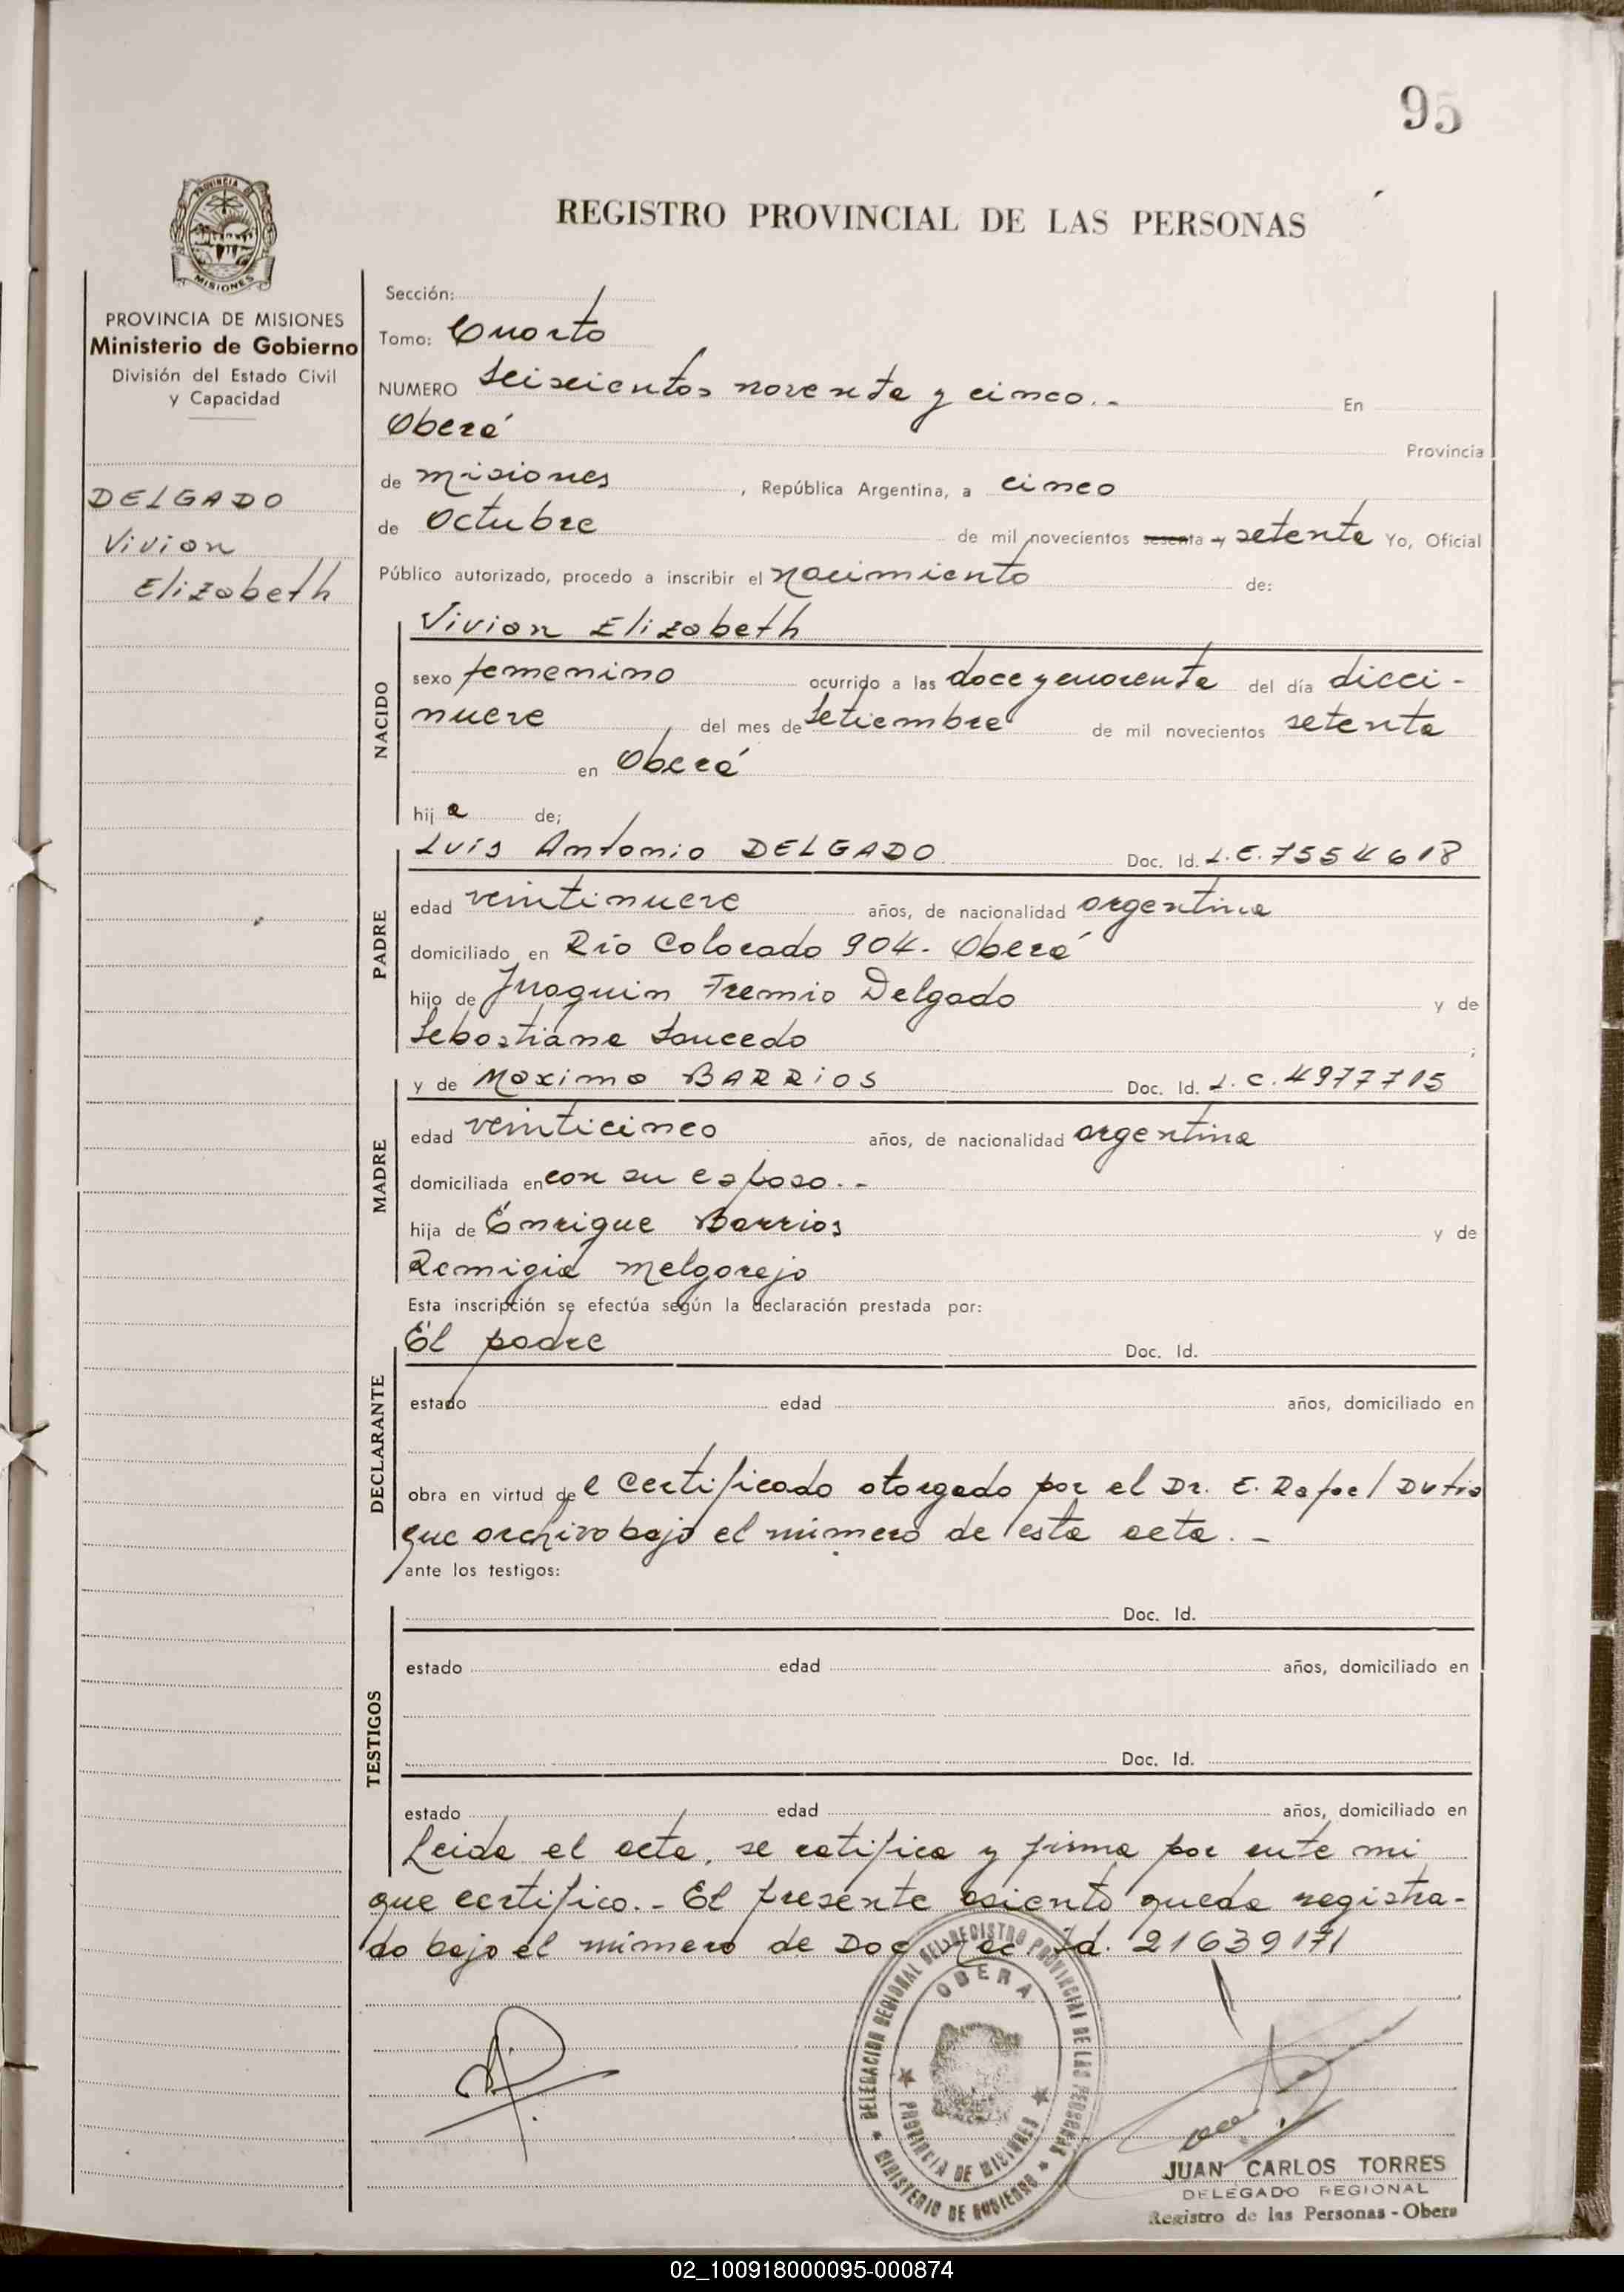 95
PROVINCIA DE
MISIONES
REGISTRO PROVINCIAL DE LAS PERSONAS
PROVINCIA DE MISIONES
Ministerio de Gobierno
División del Estado Civil
y Capacidad
DELGADO
Vivian
Elizabeth
Sección:
Tomo: Cuarto
NUMERO Seiscientos noventa y cinco.- En
Oberá Provincia
de Misiones, República Argentina, a cinco
de Octubre de mil novecientos sesenta y setenta Yo, Oficial
Público autorizado, procedo a inscribir el nacimiento de:
NACIDO
Vivian Elizabeth
sexo femenino ocurrido a las doce y cuarenta del día dieci-
nueve del mes de Setiembre de mil novecientos setenta
en Oberá
hija de;
PADRE
Luis Antonio DELGADO Doc. Id. L.E. 7554618
edad veintinueve años, de nacionalidad argentina
domiciliado en Río Colorado 904.- Oberá
hijo de Juaquin Fremio Delgado y de
Sebastiana Saucedo ;
MADRE
y de Maxima BARRIOS Doc. Id. L.C. 4977715
edad veinticinco años, de nacionalidad argentina
domiciliada en con su esposo.-
hija de Enrique Barrios y de
Remigia Melgarejo
Esta inscripción se efectúa según la declaración prestada por:
DECLARANTE
El padre Doc. Id.
estado edad años, domiciliado en
obra en virtud del certificado otorgado por el Dr. E. Rafael Dutra
que archivo bajo el número de esta acta.-
ante los testigos:
TESTIGOS
Doc. Id.
estado edad años, domiciliado en
Doc. Id.
estado edad años, domiciliado en
Leida el acta, se ratifica y firma por ante mi
que certifico.- El presente asiento queda registra-
do bajo el número de Doc Nac Id. 21639171
DELEGACION REGIONAL DEL REGISTRO PROVINCIAL DE LAS PERSONAS
OBERA
PROVINCIA DE MISIONES
MINISTERIO DE GOBIERNO
JUAN CARLOS TORRES
DELEGADO REGIONAL
Registro de las Personas - Obera
02_100918000095-000874